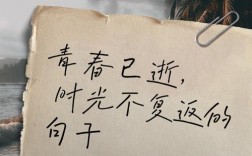 青春已逝，
时光不复返的
句子